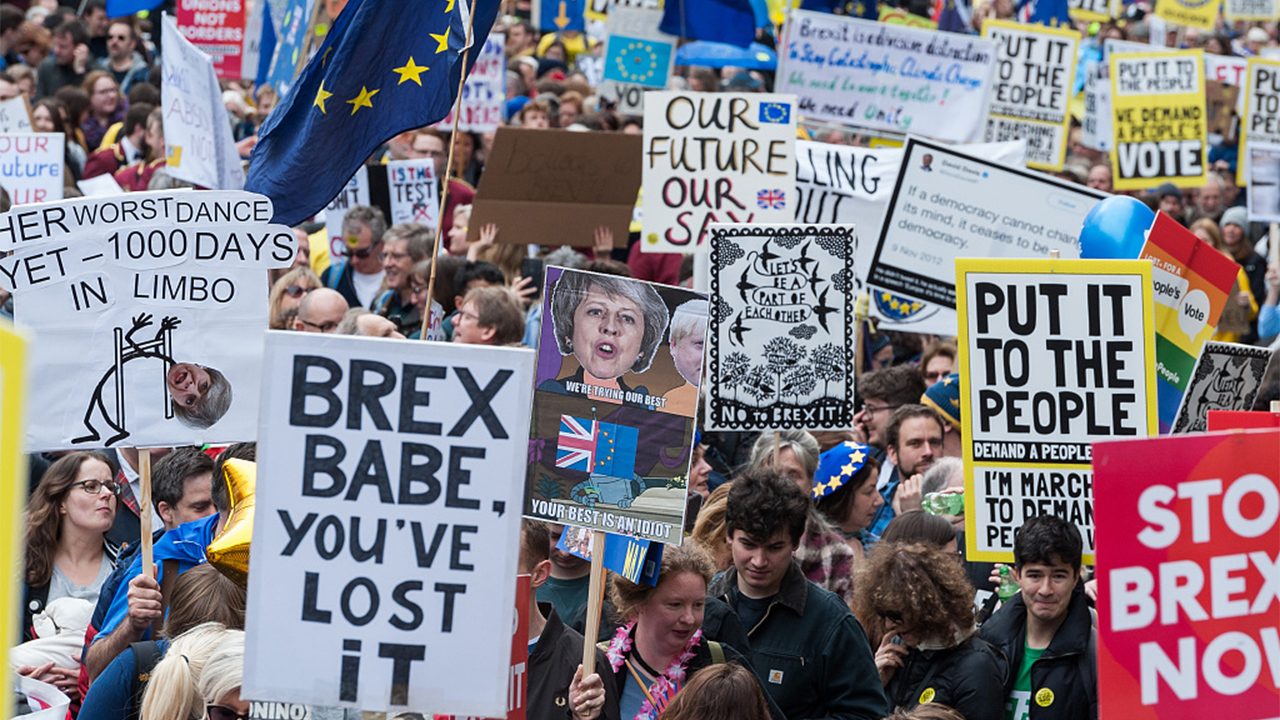 UNIONS
NOT
BORDERS
OUR
FUTURE
OUR
IS THE
TEST
OUR
FUTURE
OUR
SAY
Brexit is divisive distraction
To Stop Catastrophic Climate Change
We need to work together!
We need Unity
PUT IT
TO THE
PEOPLE
PUT IT TO
THE PEOPLE
WE DEMAND
A PEOPLE'S
VOTE
David Davis
If a democracy cannot change
its mind, it ceases to be a
democracy.
9 Nov 2012
HER WORST DANCE
YET – 1000 DAYS
IN LIMBO
BREX
BABE,
YOU'VE
LOST
iT
WE'RE TRYING OUR BEST
YOUR BEST IS AN IDIOT
LET'S
BE A
PART OF
EACH OTHER
NO TO BREXIT!
PUT IT
TO THE
PEOPLE
DEMAND A PEOPLE
I'M MARCH
TO DEMAN
LGBT+ FOR A
People's
Vote
STO
BREX
NOW